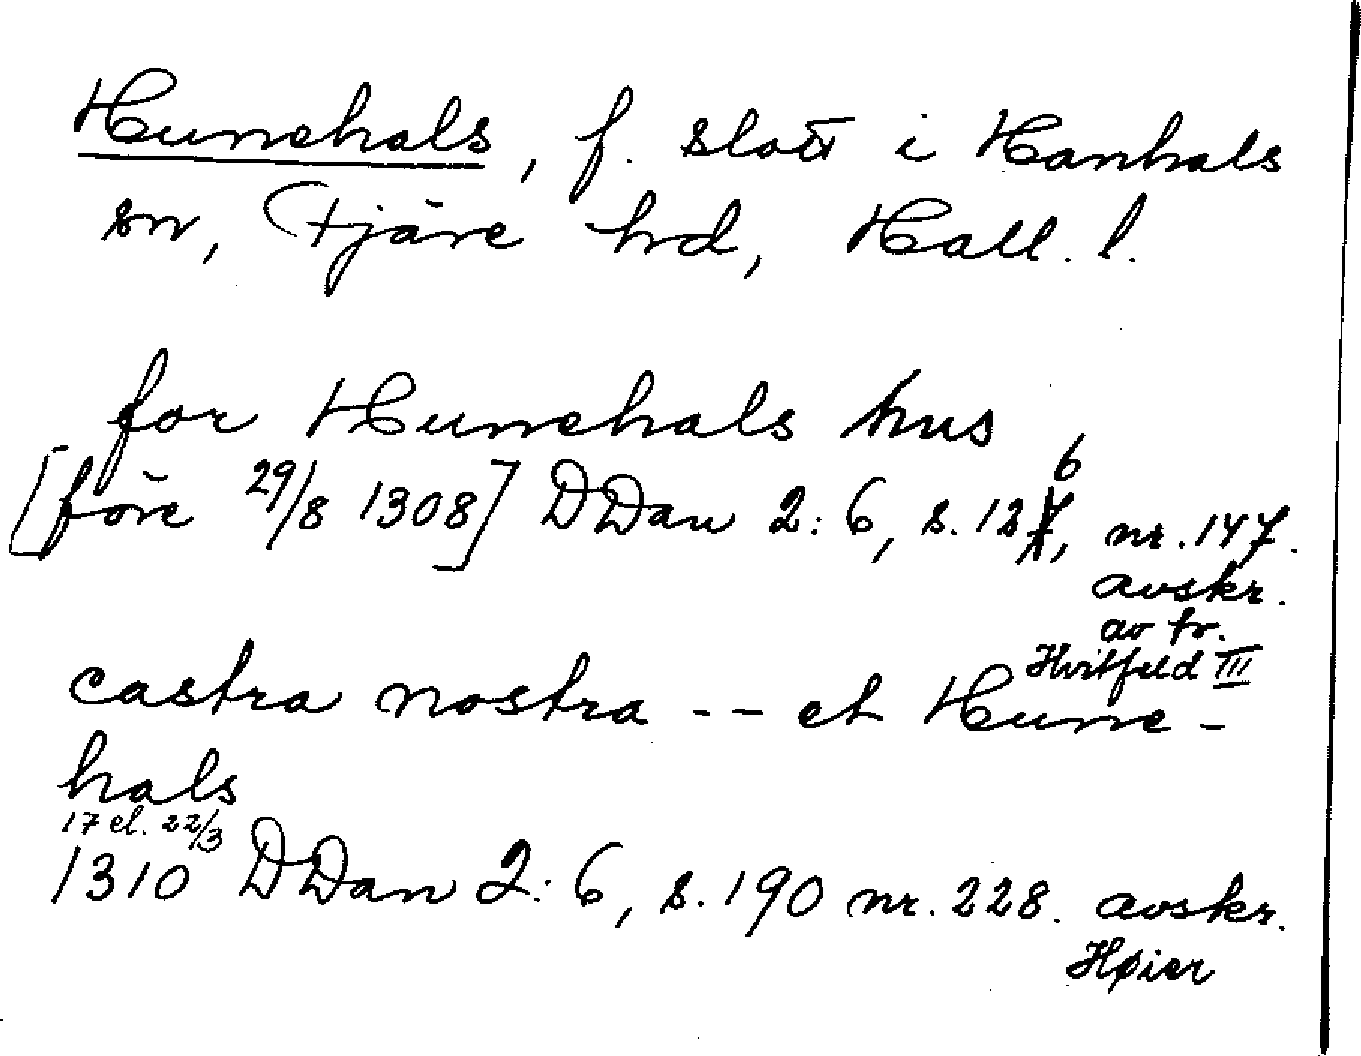 Hunehals, f. slott i Hanhals
sn, Fjäre hd, Hall. l.
for Hunehals hus
[före 29/8 1308] DDan 2:6, s. 126, nr. 147.
avskr.
av tr.
Hvitfeld III
castra nostra -- et Hune-
hals
17 el. 22/3
1310 DDan 2:6, s. 190 nr. 228. avskr.
Høier